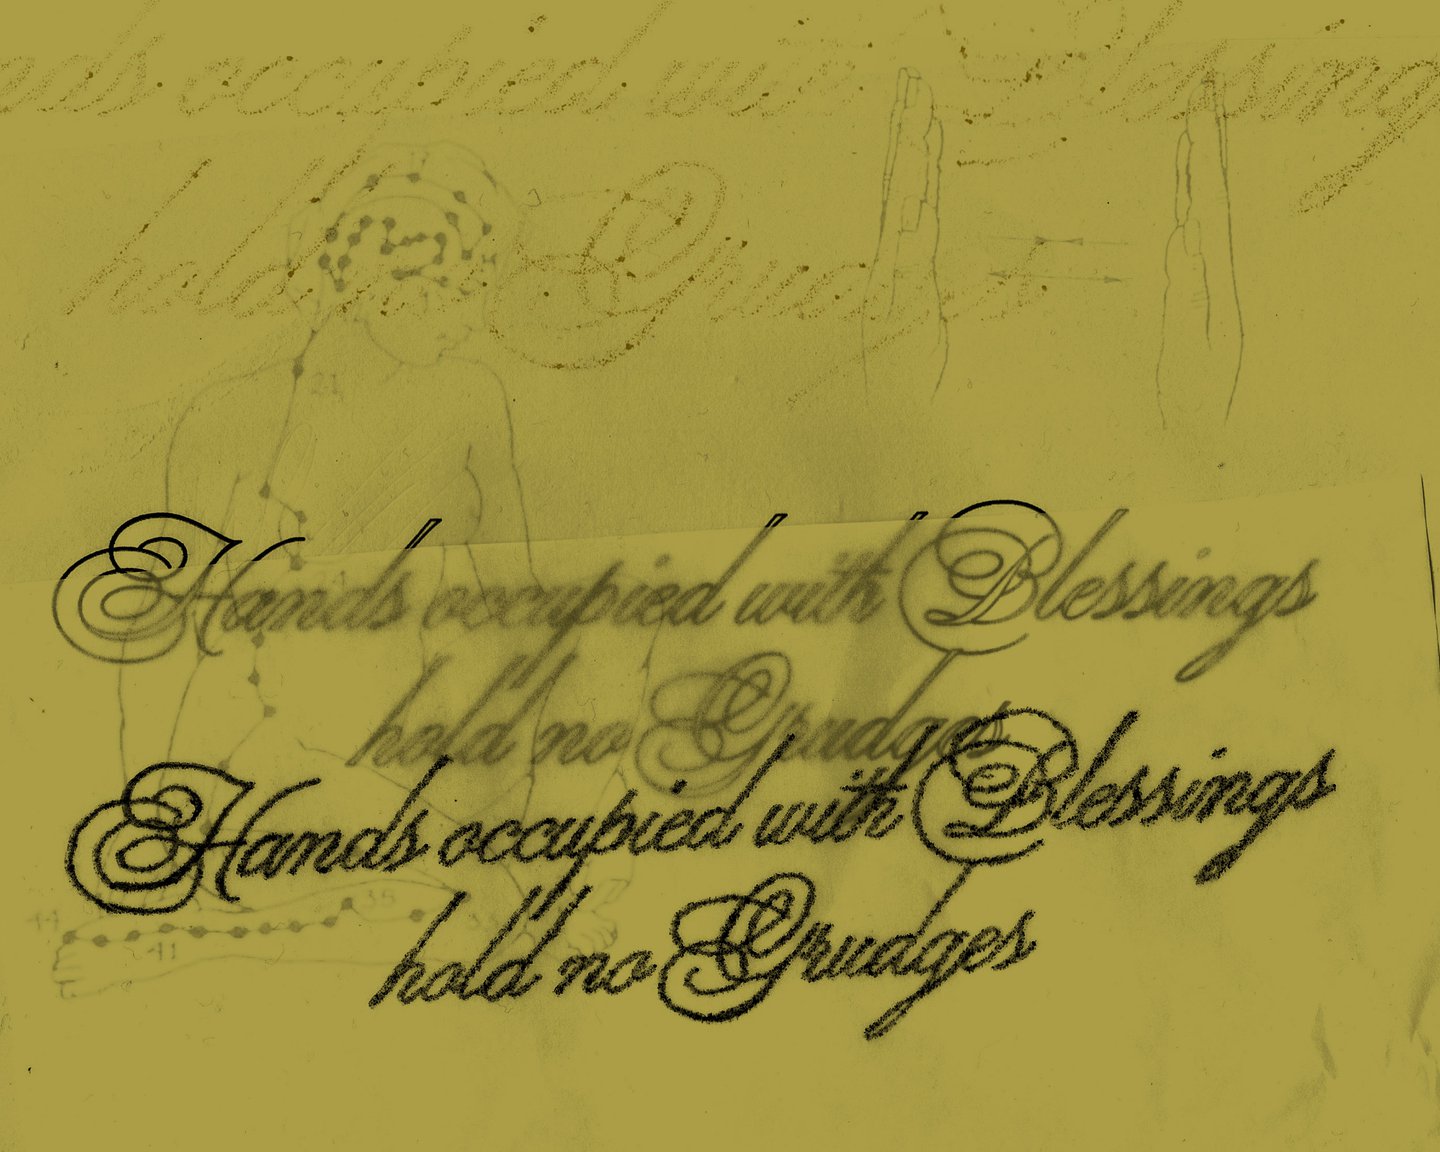 ds occupied with Blessing
hold Grudges
21
Hands occupied with Blessings
hold no Grudges
Hands occupied with Blessings
hold no Grudges
44
35
41